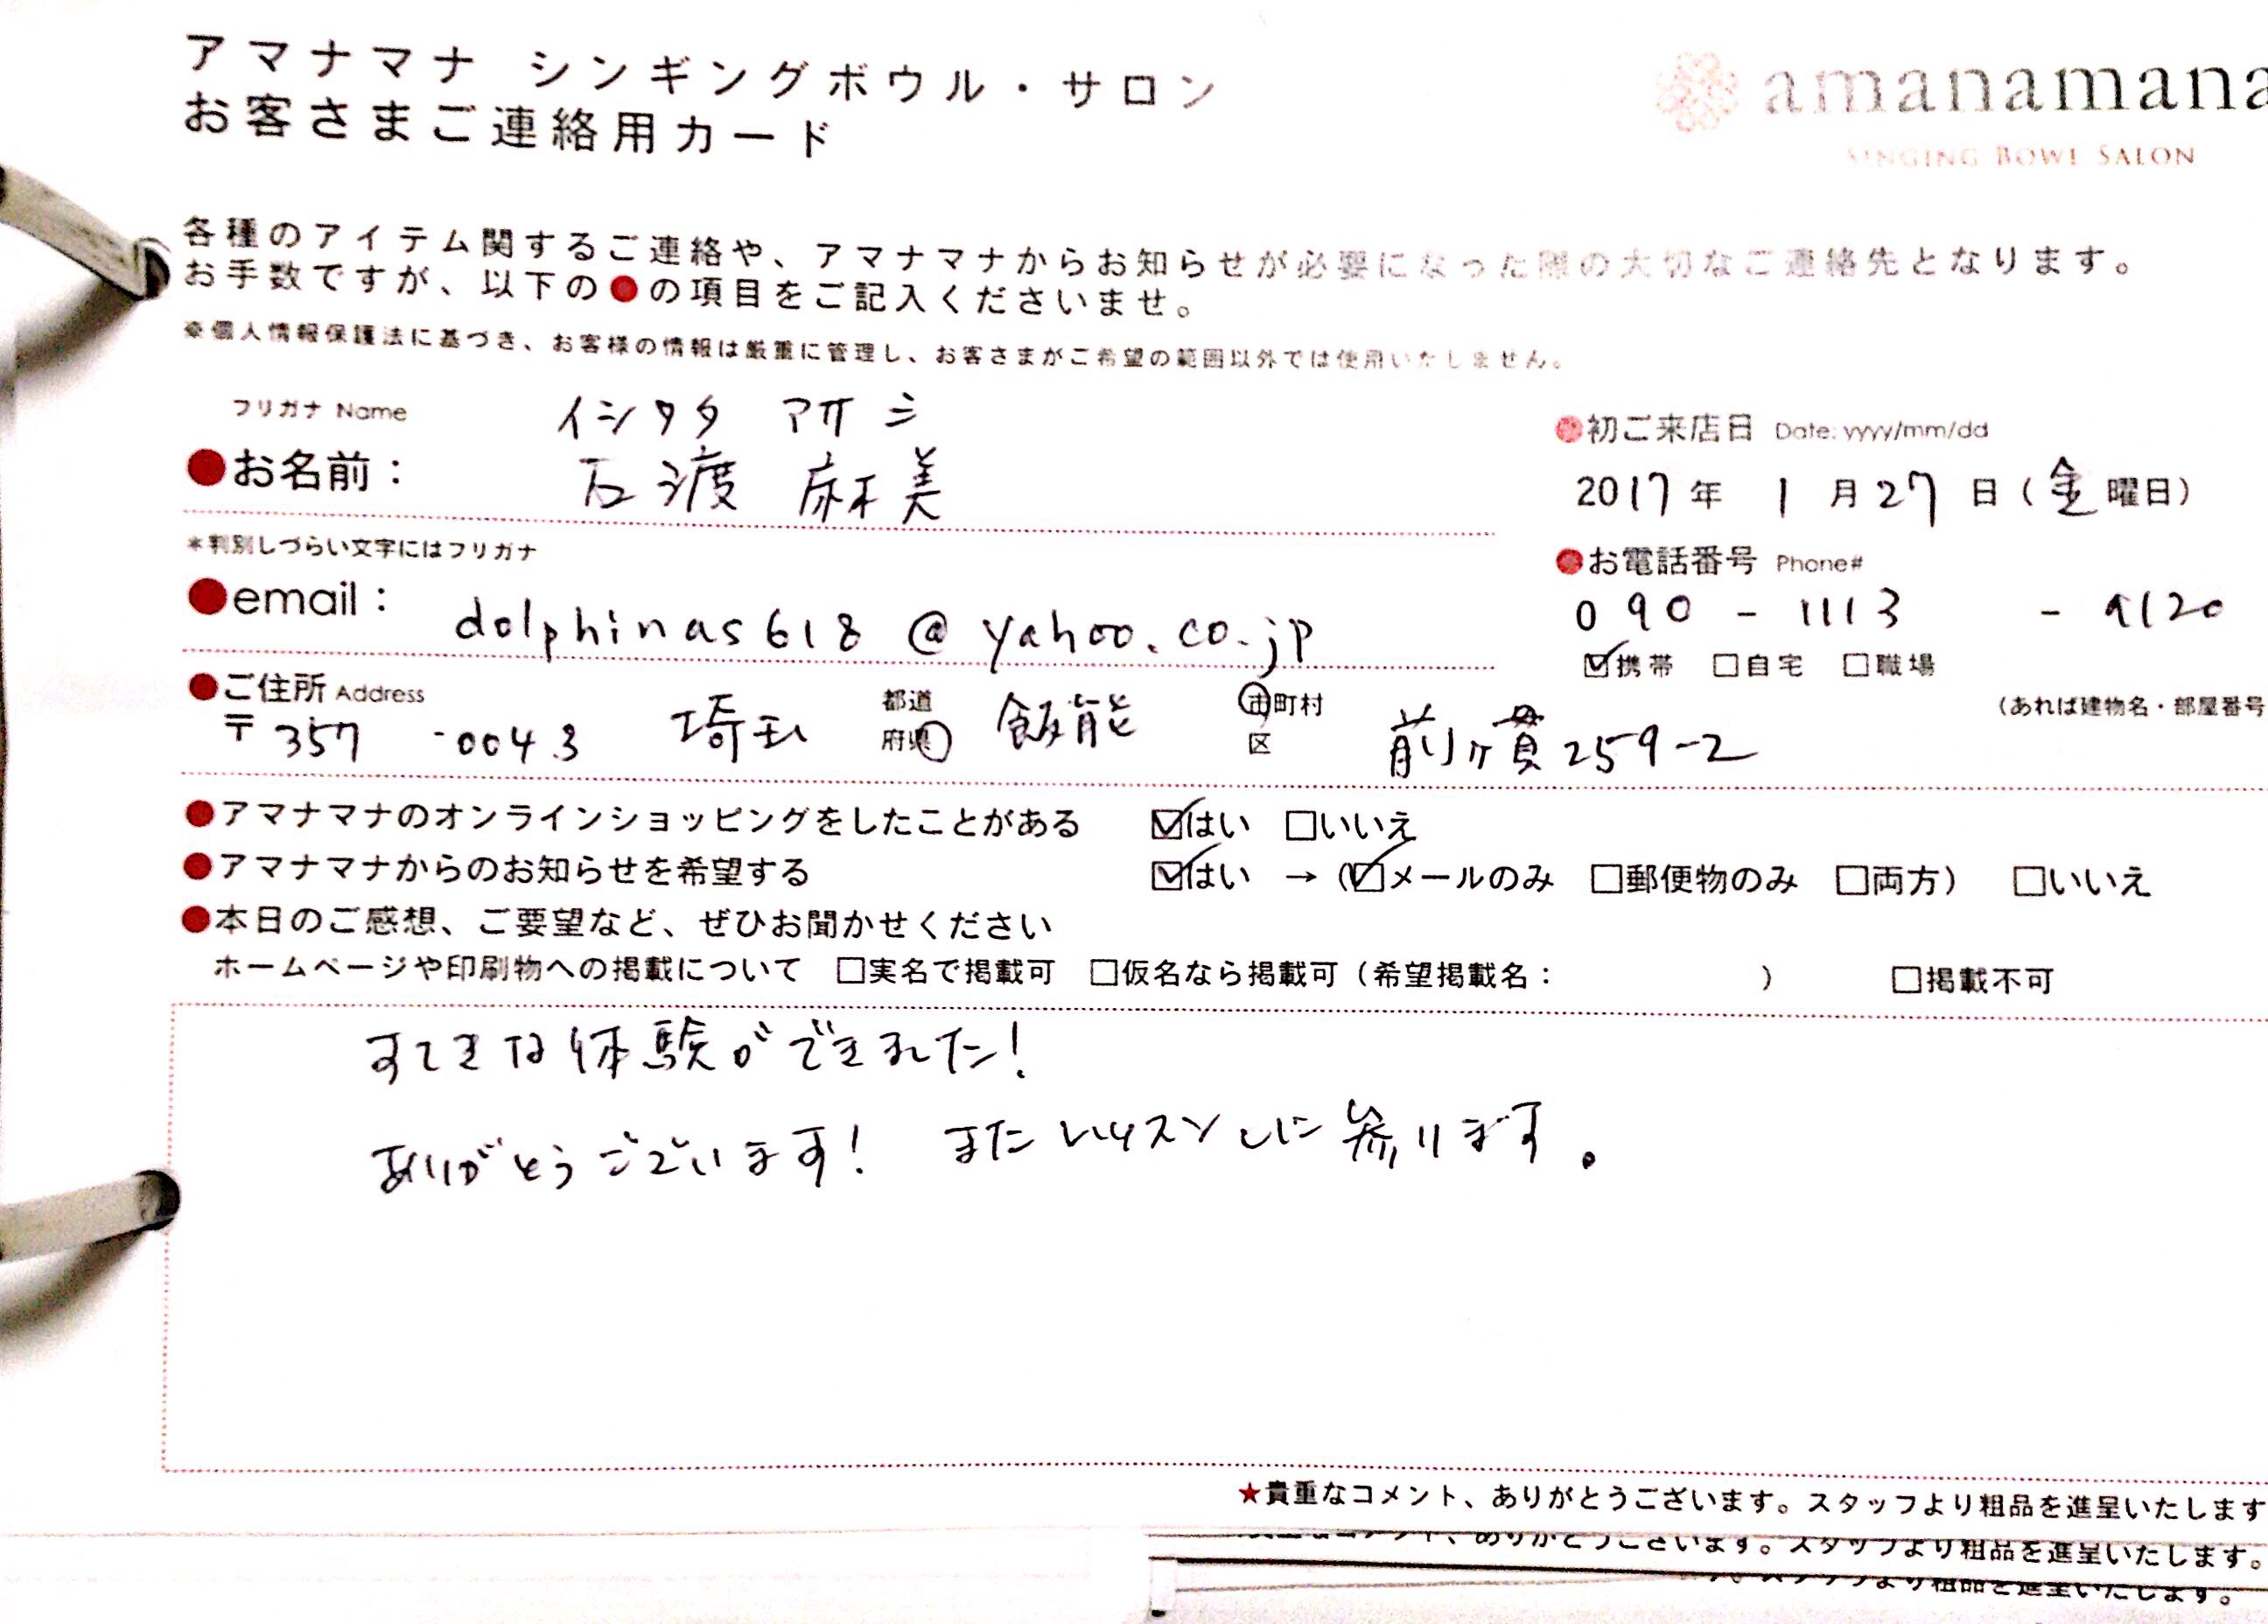 アマナマナ シンギングボウル・サロン
お客さまご連絡用カード
amanamana
SINGING BOWL SALON
各種のアイテム関するご連絡や、アマナマナからお知らせが必要になった際の大切なご連絡先となります。
お手数ですが、以下の●の項目をご記入くださいませ。
※個人情報保護法に基づき、お客様の情報は厳重に管理し、お客さまがご希望の範囲以外では使用いたしません。
フリガナ Name イシワタ アサミ
●お名前： 石渡 麻美
●初ご来店日 Date: yyyy/mm/dd
2017年 1月27日（金曜日）
*判別しづらい文字にはフリガナ
●email： dolphinas618@yahoo.co.jp
●お電話番号 Phone#
090 - 1113 - 9120
☑携帯 □自宅 □職場
●ご住所 Address
〒357-0043 埼玉 都道府県 飯能 市町村区 前ヶ貫259-2
(あれば建物名・部屋番号
●アマナマナのオンラインショッピングをしたことがある ☑はい □いいえ
●アマナマナからのお知らせを希望する ☑はい →（☑メールのみ □郵便物のみ □両方） □いいえ
●本日のご感想、ご要望など、ぜひお聞かせください
ホームページや印刷物への掲載について □実名で掲載可 □仮名なら掲載可（希望掲載名： ） □掲載不可
すてきな体験ができました！
ありがとうございます！ またレッスンしに参ります。
★貴重なコメント、ありがとうございます。スタッフより粗品を進呈いたします
ありがとうございます。スタッフより粗品を進呈いたします。
スタッフより粗品を進呈いたします。